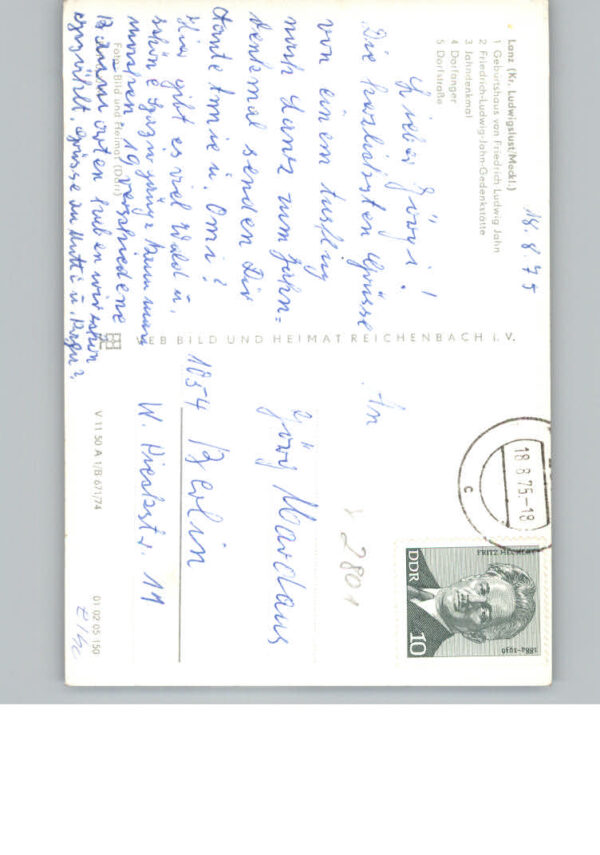 Lanz (Kr. Ludwigslust/Meckl.)
1 Geburtshaus von Friedrich Ludwig Jahn
2 Friedrich-Ludwig-Jahn-Gedenkstätte
3 Jahndenkmal
4 Dorfanger
5 Dorfstraße
18.8.75
Die herzlichsten Grüsse
von einem Ausflug
nach Lanz zum Jahn=
denkmal senden Dir
Tante u. Omi!
Hier gibt es viel Wald u.
schöne
19 verschiedene
haben wir schon
gezählt. Grüsse an Mutti u.
Foto: Bild und Heimat (Dörr)
VEB BILD UND HEIMAT REICHENBACH i. V.
V 11 50 A 1/B 671/74
01 02 05 150
18.8.75-18
c
DDR
10
FRITZ HECKERT
1884-1936
2801
An
Jörg
1054 Berlin
W. Pieckstr. 11